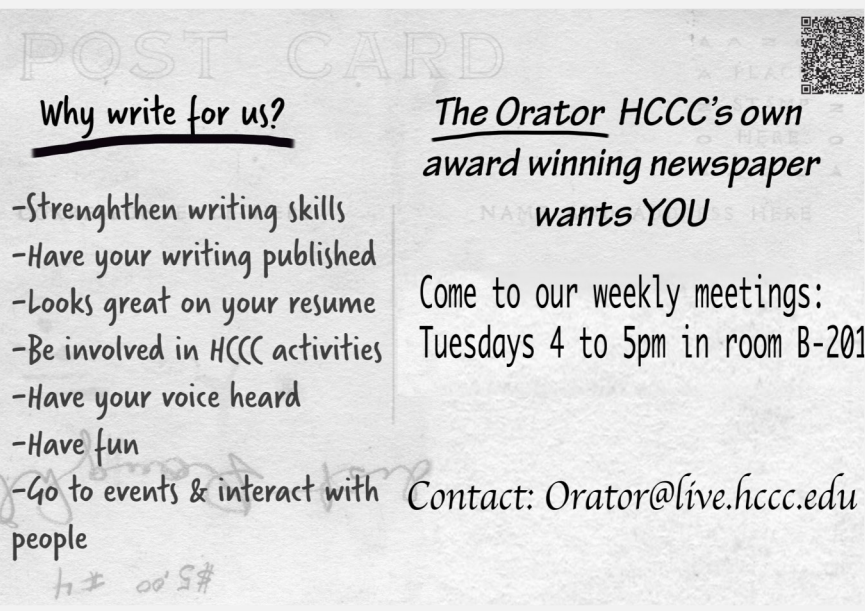 POST CARD
Why write for us?
-Strenghthen writing skills
-Have your writing published
-Looks great on your resume
-Be involved in HCCC activities
-Have your voice heard
-Have fun
-Go to events & interact with
people
$5.00 #4
The Orator HCCC's own
award winning newspaper
wants YOU
Come to our weekly meetings:
Tuesdays 4 to 5pm in room B-201
Contact: Orator@live.hccc.edu
PLACE
STAMP
HERE